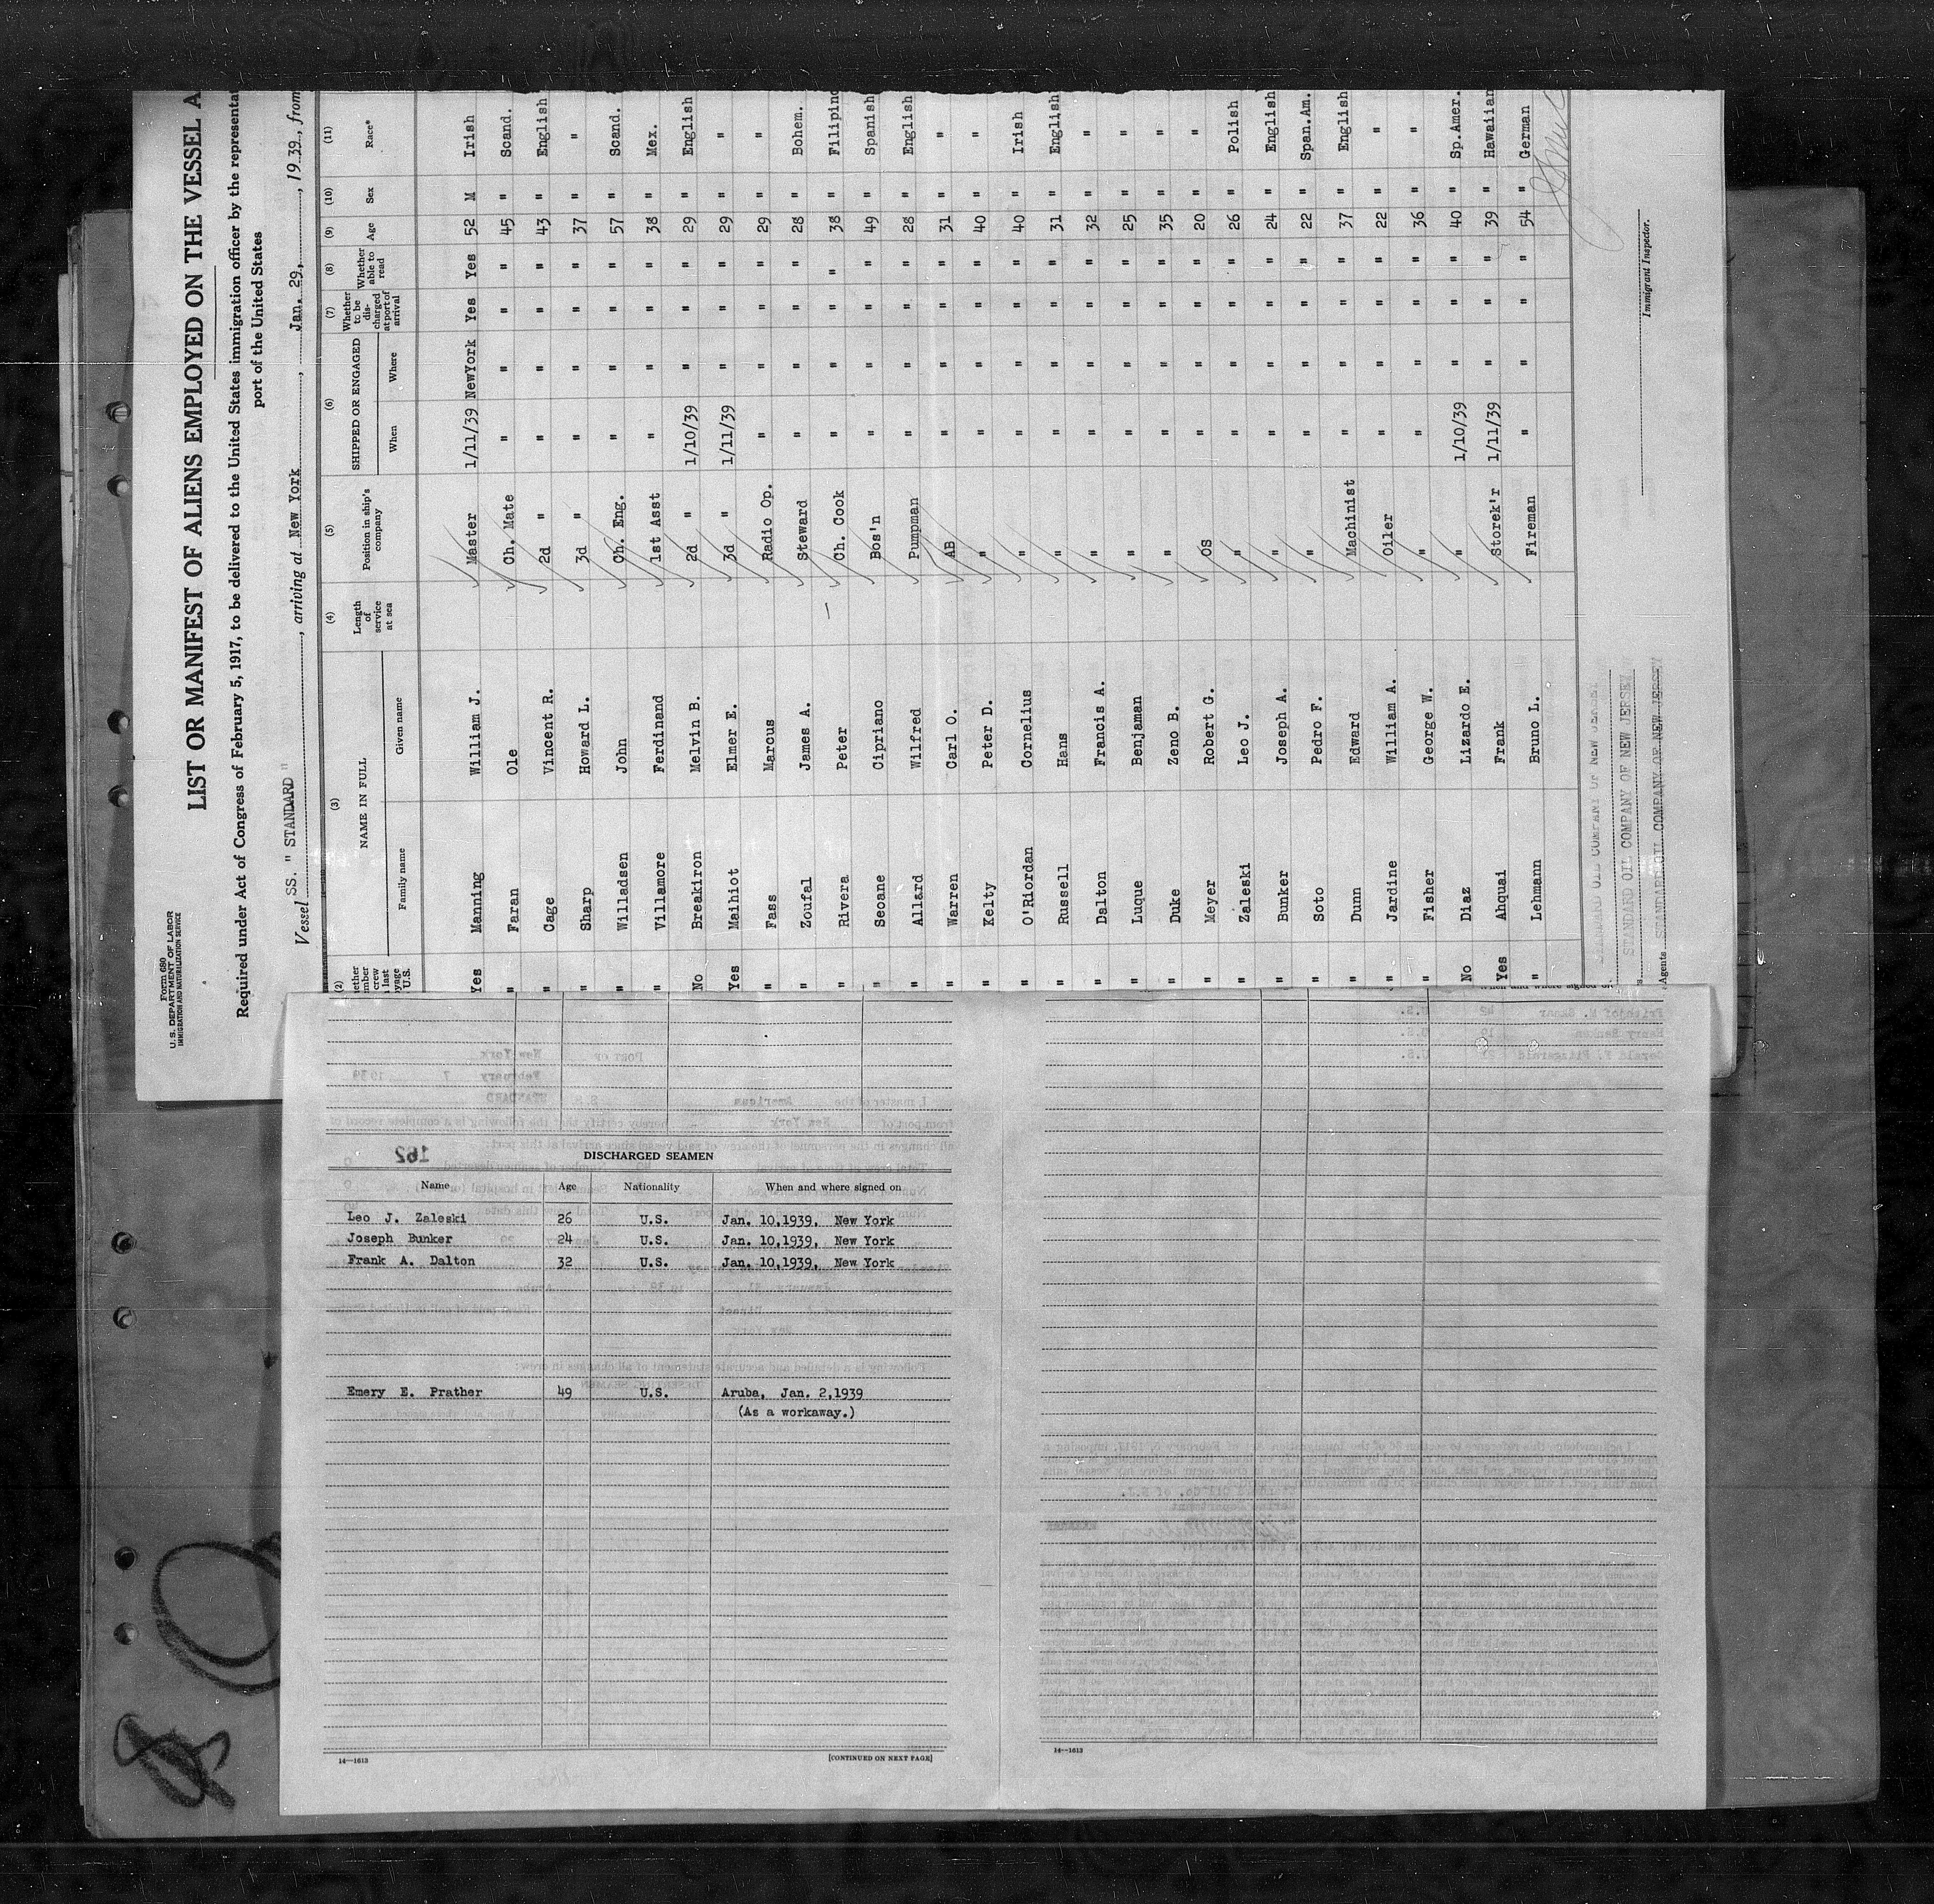 Form 680
U. S. DEPARTMENT OF LABOR
IMMIGRATION AND NATURALIZATION SERVICE
LIST OR MANIFEST OF ALIENS EMPLOYED ON THE VESSEL A
Required under Act of Congress of February 5, 1917, to be delivered to the United States immigration officer by the representa
port of the United States
Vessel SS. " STANDARD ", arriving at New York, Jan. 29, 1939, from
(2) (3) (4) (5) (6) (7) (8) (9) (10) (11)
NAME IN FULL Length of service at sea Position in ship's company SHIPPED OR ENGAGED Whether to be discharged at port of arrival Whether able to read Age Sex Race*
Family name Given name When Where
Yes Manning William J. Master 1/11/39 NewYork Yes Yes 52 M Irish
" Faran Ole Ch. Mate " " " " 45 " Scand.
" Cage Vincent R. 2d " " " " " 43 " English
" Sharp Howard L. 3d " " " " " 37 " "
" Willadsen John Ch. Eng. " " " " 57 " Scand.
" Villamore Ferdinand 1st Asst " " " " 38 " Mex.
No Breakiron Melvin B. 2d " 1/10/39 " " " 29 " English
Yes Malhiot Elmer E. 3d " 1/11/39 " " " 29 " "
" Fass Marcus Radio Op. " " " " 29 " "
" Zoufal James A. Steward " " " " 28 " Bohem.
" Rivera Peter Ch. Cook " " " " 38 " Filipino
" Seoane Cipriano Bos'n " " " " 49 " Spanish
" Allard Wilfred Pumpman " " " " 28 " English
" Warren Carl O. AB " " " " 31 " "
" Kelty Peter D. " " " " " 40 " "
" O'Riordan Cornelius " " " " " 40 " Irish
" Russell Hans " " " " " 31 " English
" Dalton Francis A. " " " " " 32 " "
" Luque Benjaman " " " " " 25 " "
" Duke Zeno B. " " " " " 35 " "
" Meyer Robert G. OS " " " " 20 " "
" Zaleski Leo J. " " " " " 26 " Polish
" Bunker Joseph A. " " " " " 24 " English
" Soto Pedro F. " " " " " 22 " Span.Am.
" Dunn Edward Machinist " " " " 37 " English
" Jardine William A. Oiler " " " " 22 " "
" Fisher George W. " " " " " 36 " "
No Diaz Lizardo E. " 1/10/39 " " " 40 " Sp.Amer.
Yes Ahquai Frank Storek'r 1/11/39 " " " 39 " Hawaiian
" Lehmann Bruno L. Fireman " " " " 54 " German
STANDARD OIL COMPANY OF NEW JERSEY
STANDARD OIL COMPANY OF NEW JERSEY
Agents STANDARD OIL COMPANY OF NEW JERSEY
Immigrant Inspector.
162
DISCHARGED SEAMEN
Name Age Nationality When and where signed on
Leo J. Zaleski 26 U.S. Jan. 10,1939, New York
Joseph Bunker 24 U.S. Jan. 10,1939, New York
Frank A. Dalton 32 U.S. Jan. 10,1939, New York
Emery E. Prather 49 U.S. Aruba, Jan. 2,1939
(As a workaway.)
14—1613 [CONTINUED ON NEXT PAGE]
14—1613